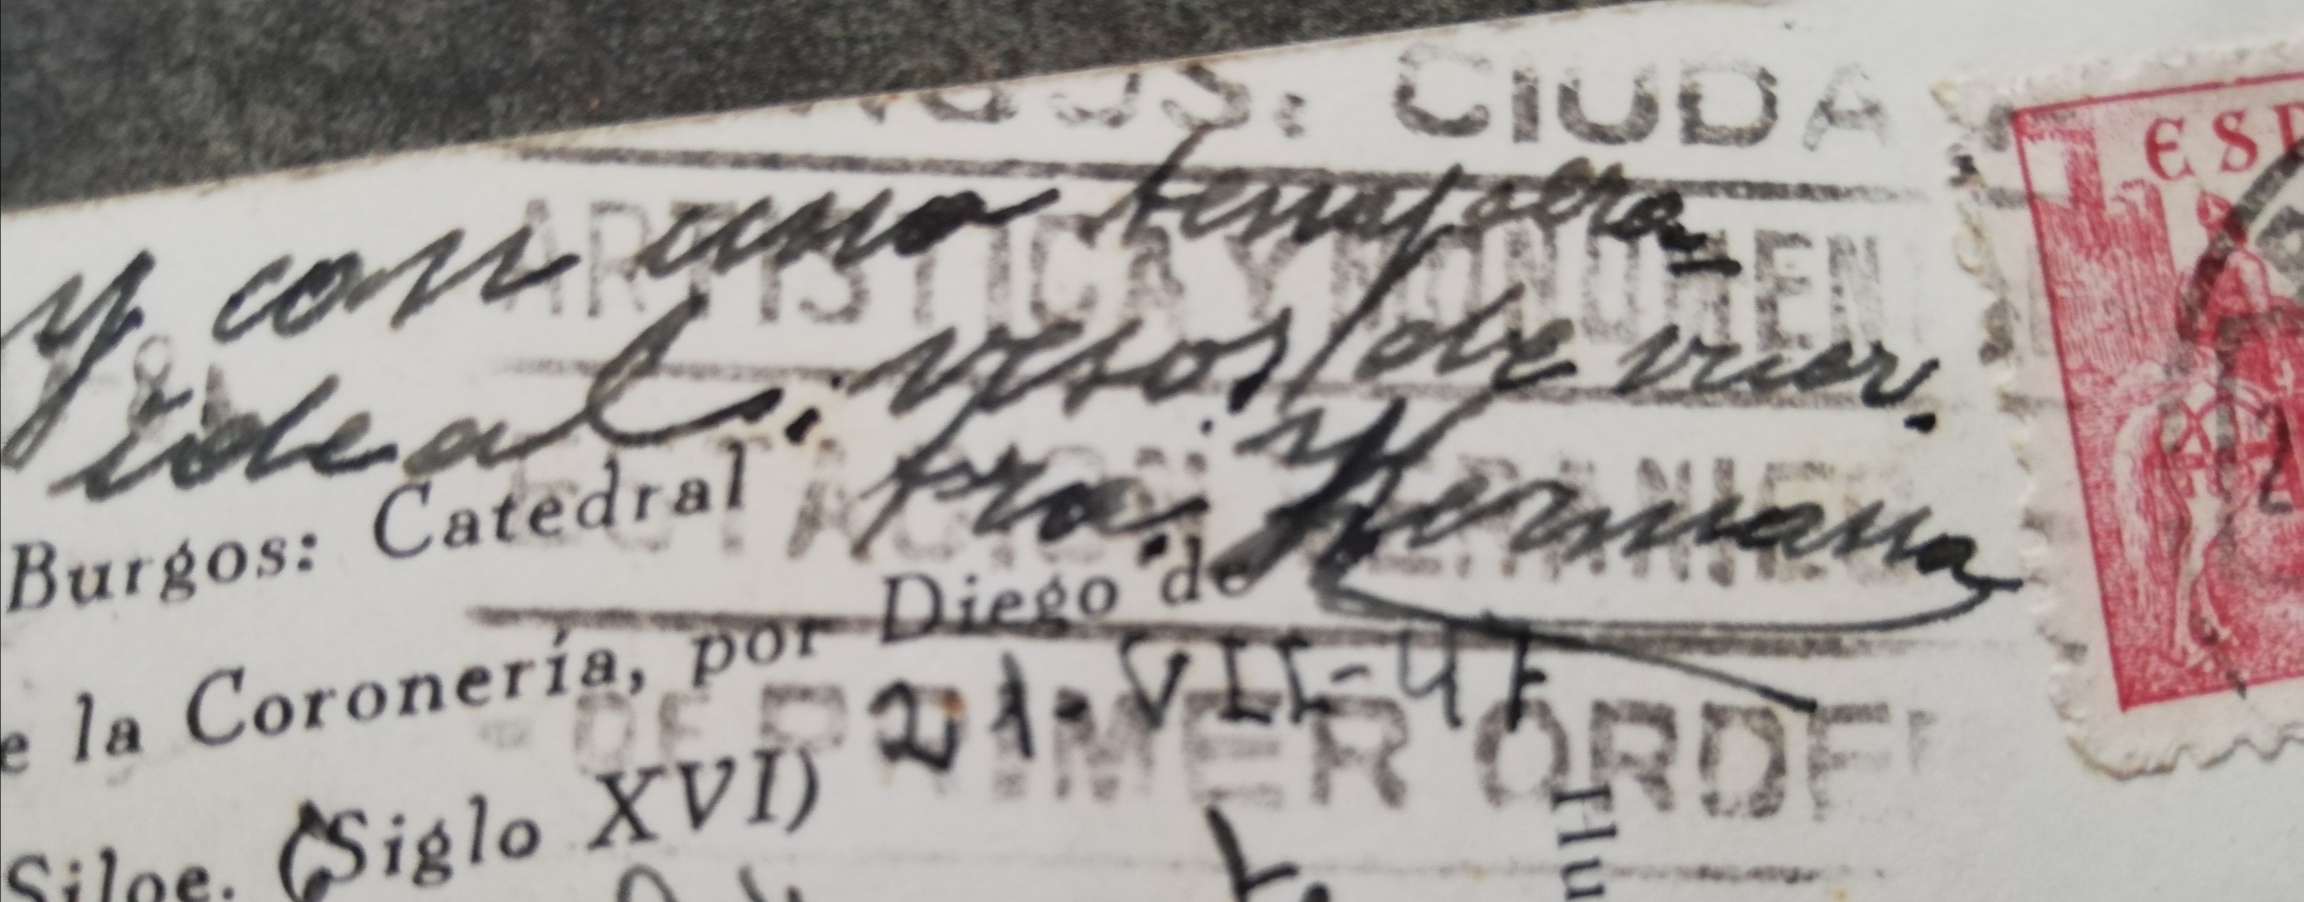 GOS: CIUDA
ARTISTICA Y MONUMEN
DE PRIMER ORDE
ESP
y con una tempera_
ideal. vesos de vues.
tra. Hermana
Burgos: Catedral
e la Coronería, por Diego de
Siloe. (Siglo XVI)
21-VII-47